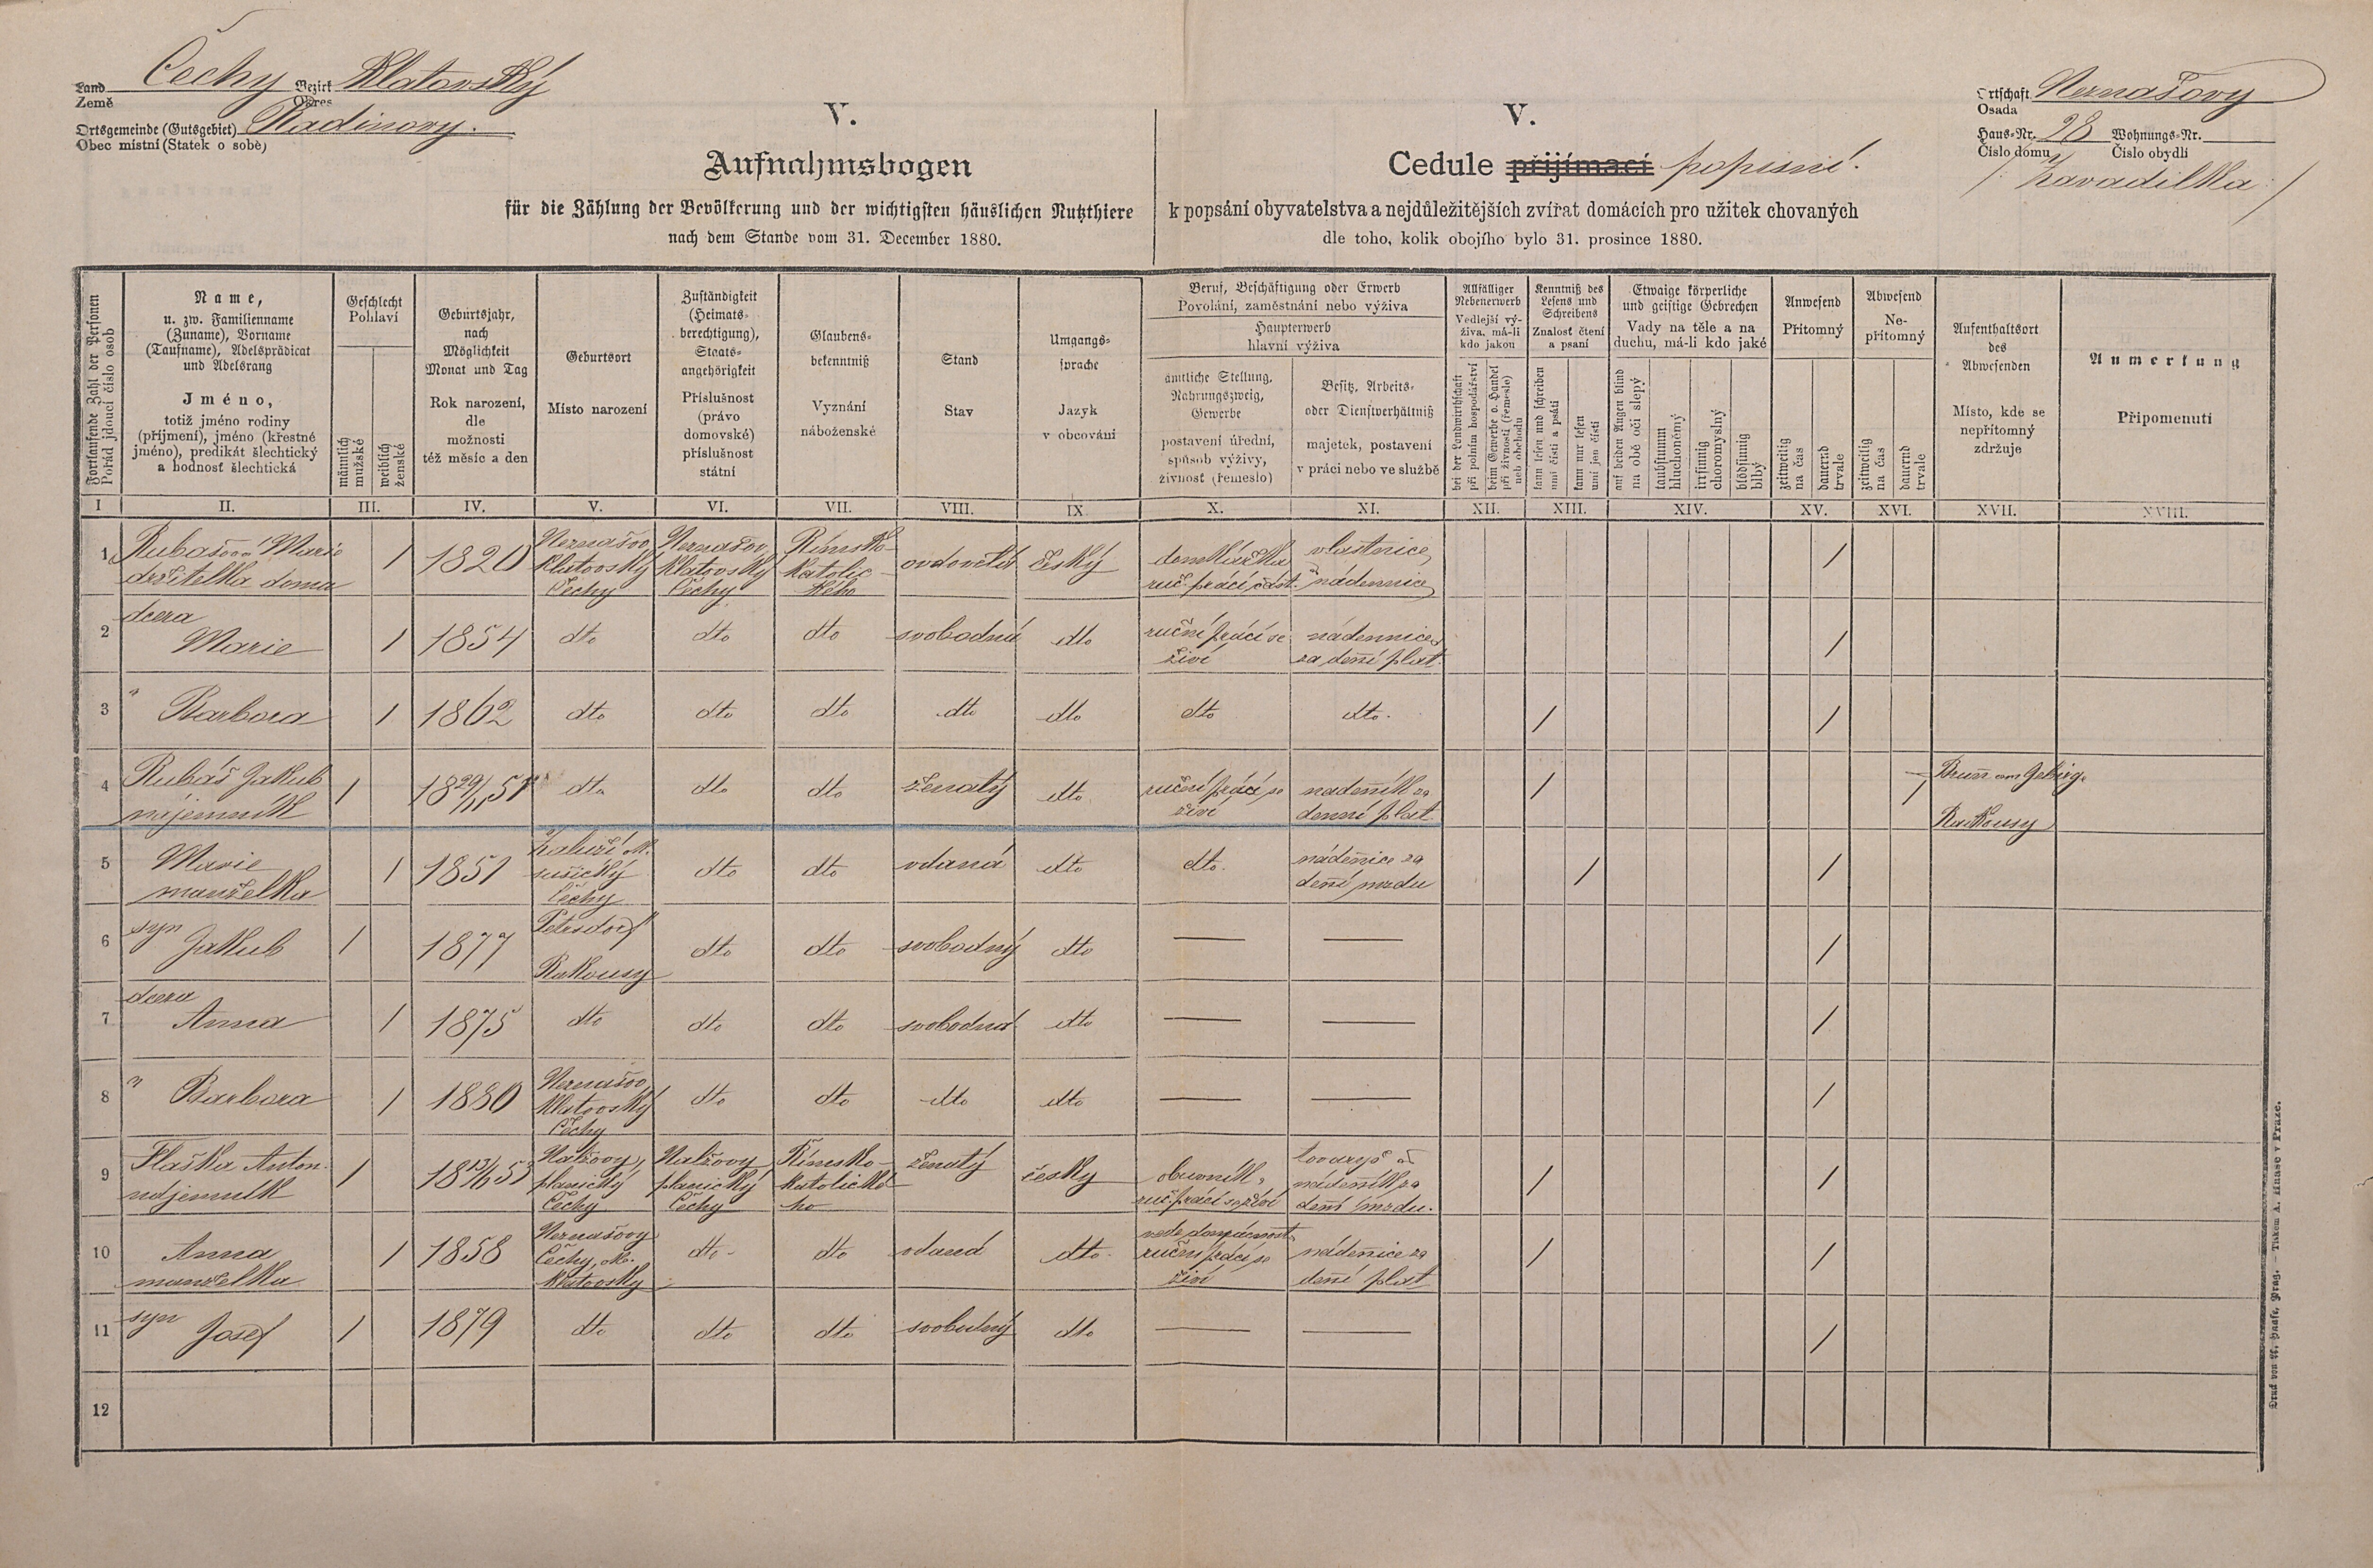 Land Země Čechy Bezirk Okres Klatovský
Ortsgemeinde (Gutsgebiet) Obec místní (Statek o sobě) Radinovy.
Ortschaft Osada Nernašovy
Haus-Nr. Číslo domu 28 Wohnungs-Nr. Číslo obydlí
/: Zavadilka :/
V.
Aufnahmsbogen
für die Zählung der Bevölkerung und der wichtigsten häuslichen Nutzthiere
nach dem Stande vom 31. December 1880.
V.
Cedule přijímací popisní.
k popsání obyvatelstva a nejdůležitějších zvířat domácích pro užitek chovaných
dle toho, kolik obojího bylo 31. prosince 1880.
Fortlaufende Zahl der Personen
Pořád jdoucí číslo osob
Name,
u. zw. Familienname
(Zuname), Vorname
(Taufname), Adelsprädicat
und Adelsrang
Jméno,
totiž jméno rodiny
(příjmení), jméno (křestné
jméno), predikát šlechtický
a hodnosť šlechtická
Geschlecht
Pohlaví
männlich
mužské
weiblich
ženské
Geburtsjahr,
nach
Möglichkeit
Monat und Tag
Rok narození,
dle
možnosti
též měsíc a den
Geburtsort
Místo narození
Zuständigkeit
(Heimats-
berechtigung),
Staats-
angehörigkeit
Příslušnost
(právo
domovské)
příslušnost
státní
Glaubens-
bekenntniß
Vyznání
náboženské
Stand
Stav
Umgangs-
sprache
Jazyk
v obcování
Beruf, Beschäftigung oder Erwerb
Povolání, zaměstnání nebo výživa
Haupterwerb
hlavní výživa
ämtliche Stellung,
Nahrungszweig,
Gewerbe
postavení úřední,
spůsob výživy,
živnosť (řemeslo)
Besitz, Arbeits-
oder Dienstverhältniß
majetek, postavení
v práci nebo ve službě
Allfälliger
Nebenerwerb
Vedlejší vý-
živa, má-li
kdo jakou
bei der Landwirthschaft
při polním hospodářství
beim Gewerbe o. Handel
při živnosti (řemesle)
neb obchodu
Kenntniß des
Lesens und
Schreibens
Znalost čtení
a psaní
kann lesen und schreiben
umí čísti a psáti
kann nur lesen
umí jen čísti
Etwaige körperliche
und geistige Gebrechen
Vady na těle a na
duchu, má-li kdo jaké
auf beiden Augen blind
na obě oči slepý
taubstumm
hluchoněmý
irrsinnig
choromyslný
blödsinnig
blbý
Anwesend
Přítomný
zeitweilig
na čas
dauernd
trvale
Abwesend
Ne-
přítomný
zeitweilig
na čas
dauernd
trvale
Aufenthaltsort
des
Abwesenden
Místo, kde se
nepřítomný
zdržuje
Anmerkung
Připomenutí
I II. III. IV. V. VI. VII. VIII. IX X. XI. XII. XIII. XIV. XV. XVI. XVII. XVIII.
1 Rubašová Marie držitelka domu / 1820 Nernašov Klatovský Čechy Nernašov Klatovský Čechy Římsko-katolického ovdovělá český domkářka ruč. prácí část. vlastnice nádennice /
2 dcera Marie / 1854 dto dto dto svobodná dto ruční prácí se živí nádennice za dení plat. /
3 " Barbora / 1862 dto dto dto dto dto dto dto. / /
4 Rubáš Jakub nájemník / 18 29/11 51 dto dto dto ženatý dto ruční prácí se živí nadeník za denní plat / / Brun am Gebirge Rakousy
5 Marie manželka / 1851 Zaluží ok. sušický Čechy dto dto vdaná dto dto. nádenice za dení mzdu / /
6 syn Jakub / 1877 Petrsdorf Rakousy dto dto svobodný dto — — /
7 dcera Anna / 1875 dto dto dto svobodná dto — — /
8 " Barbora / 1880 Nernašov Klatovský Čechy dto dto dto dto — — /
9 Flaška Anton. nájemník / 18 13/6 53 Nalžovy, planický Čechy Nalžovy planický Čechy Římsko-katolického ženatý česky obuvník, ruč. prácí se živí tovaryš a nádeník za dení mzdu. / /
10 Anna manželka / 1858 Nernašovy Čechy, ok. Klatovský dto- dto vdaná dto. vede domácnost ruční prácí se živí nádenice za dení plat / /
11 syn Josef / 1879 dto dto dto svobodný dto — — /
12
Druck von A. Haase, Prag. — Tiskem A. Haase v Praze.